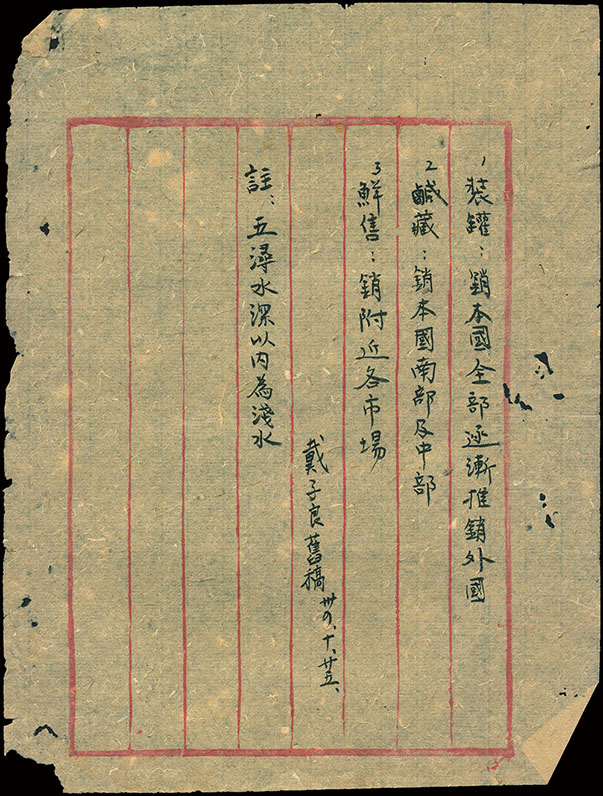 1 裝罐：銷本國全部逐漸推銷外國
2 鹹藏：銷本國南部及中部
3 鮮售：銷附近各市場
戴子良舊稿 卅四、十、廿五、
註：五潯水深以內為淺水